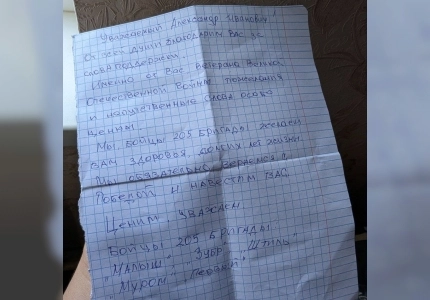 Уважаемый Александр Иванович!
От всей души благодарим Вас за
слова поддержки.
Именно от Вас Ветерана Великой
Отечественной Войны пожелания
и напутственные слова особо
ценны.
Мы бойцы 205 бригады желаем
Вам здоровья, долгих лет жизни.
Мы обязательно вернемся с
Победой и навестим Вас.
Ценим уважаем
Бойцы 205 бригады
"Малыш", "Зубр", "Штиль"
"Муром",